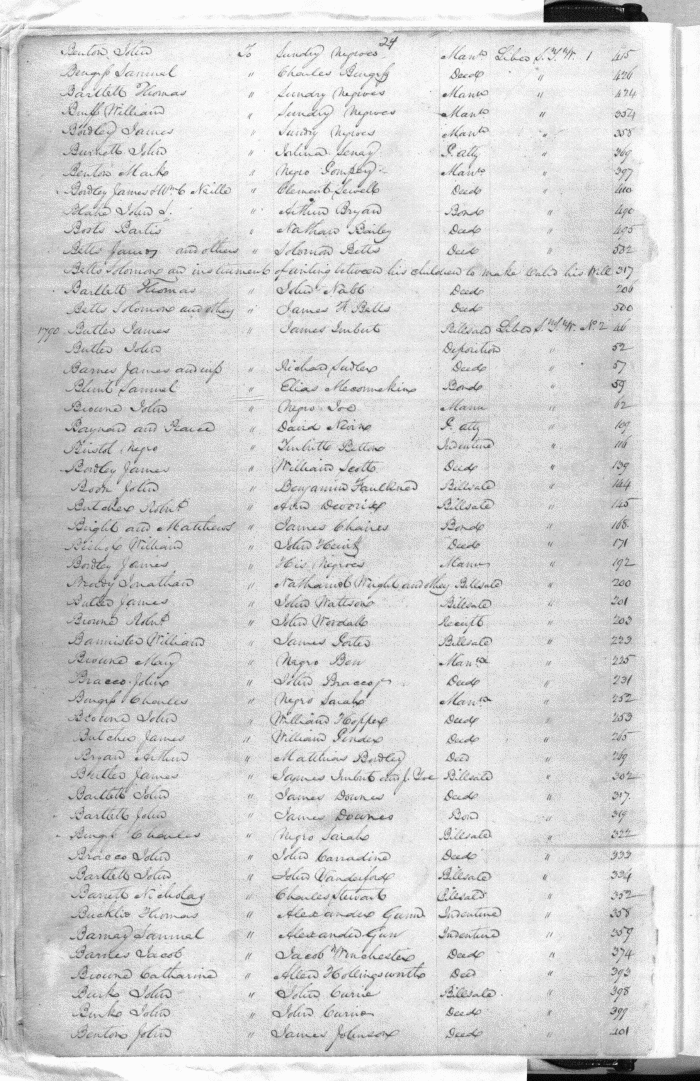 24
Benton John To Sundry Negroes Manu Liber S.T.W. 1 415
Bengiss Samuel " Charles Bengiss Deed " 426
Bartlett Thomas " Sundry Negroes Manu " 424
Buff William " Sundry Negroes Manu " 354
Bordley James " Sundry Negroes Manu " 358
Burnett John " P. atty " 369
Benton Mark " Negro Pompey Manu " 397
Bordley James & Wm C Neille " Clement Sewell Deed " 400
Blake John S. " Arthur Bryan Bond " 490
Boots Bartis " Nathan Bailey Deed " 495
Betts James and others " Solomon Betts Deed " 532
Betts Solomon an instrument of writing between his children to make valid his Will 317
Bartlett Thomas " John Nabb Deed 206
Betts Solomon and others " James H Betts Deed 500
1790 Butler James " James Imbert Billsale Liber S.T.W. No. 2 46
Butler John Deposition " 52
Barnes James and wife " Richard Sudler Deed " 57
Blunt Samuel " Elias Meconnekin Bond " 59
Browne John " Negro Joe Manu " 62
Baynard and Pearce " David Nevin P. atty " 109
Bristol Negro " Turbutt Betton Indenture " 116
Bordley James " William Scott Deed " 139
Boon John " Benjamin Faulkner Billsale " 144
Butcher Robt " Ann Devorix Billsale " 145
Bright and Matthews " James Chaires Bond " 168
Bishop William " John Deed " 171
Bordley James " His Negroes Manu " 192
Jonathan " Nathaniel Wright and others Billsale " 200
Butler James " John Wattson Billsale " 201
Browne Robt " John Wordale Receipt " 203
Bannister William " James Porter Billsale " 223
Browne Mary " Negro Ben Manu " 225
Bracco John " John Bracco jr Deed " 231
Bengiss Charles " Negro Sarah Manu " 252
Browne John " William Hopper Deed " 253
Butcher James " William Pinder Deed " 265
Bryan Arthur " Matthias Bordley Deed " 269
James " James Imbert and J. Billsale " 302
Bartlett John " James Downes Deed " 317
Bartlett John " James Downes Bond " 319
Bengiss Charles " Negro Sarah Billsale " 322
Bracco John " John Carradine Deed " 333
Bartlett John " John Vanderford Billsale " 334
Barrett Nicholas " Charles Stewart Billsale " 352
Thomas " Alexander Gunn Indenture " 358
Samuel " Alexander Gun Indenture " 359
Barnes Jacob " Jacob Winchester Deed " 374
Browne Catharine " Allen Hollingsworth Deed " 393
Burk John " John Currie Billsale " 398
Burk John " John Currie Deed " 399
Benton John " James Johnson Deed " 401